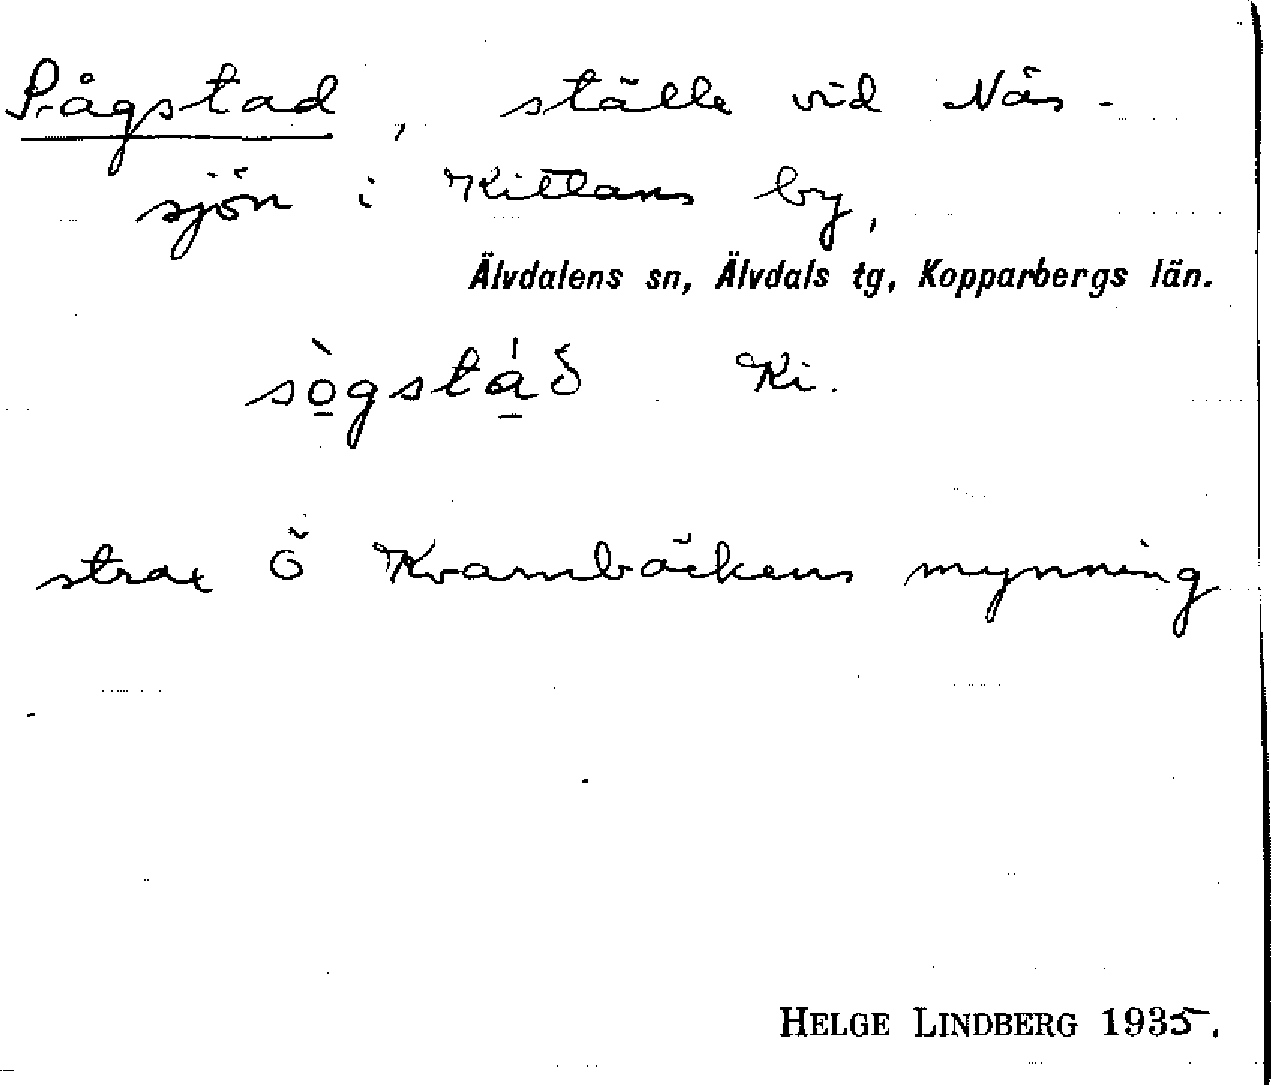 Sågstad, ställe vid Näs-
sjön i Kittans by,
Älvdalens sn, Älvdals tg, Kopparbergs län.
sò̠gstá̠ð Ki.
strax Ö Kvarnbäckens mynning
HELGE LINDBERG 1935.